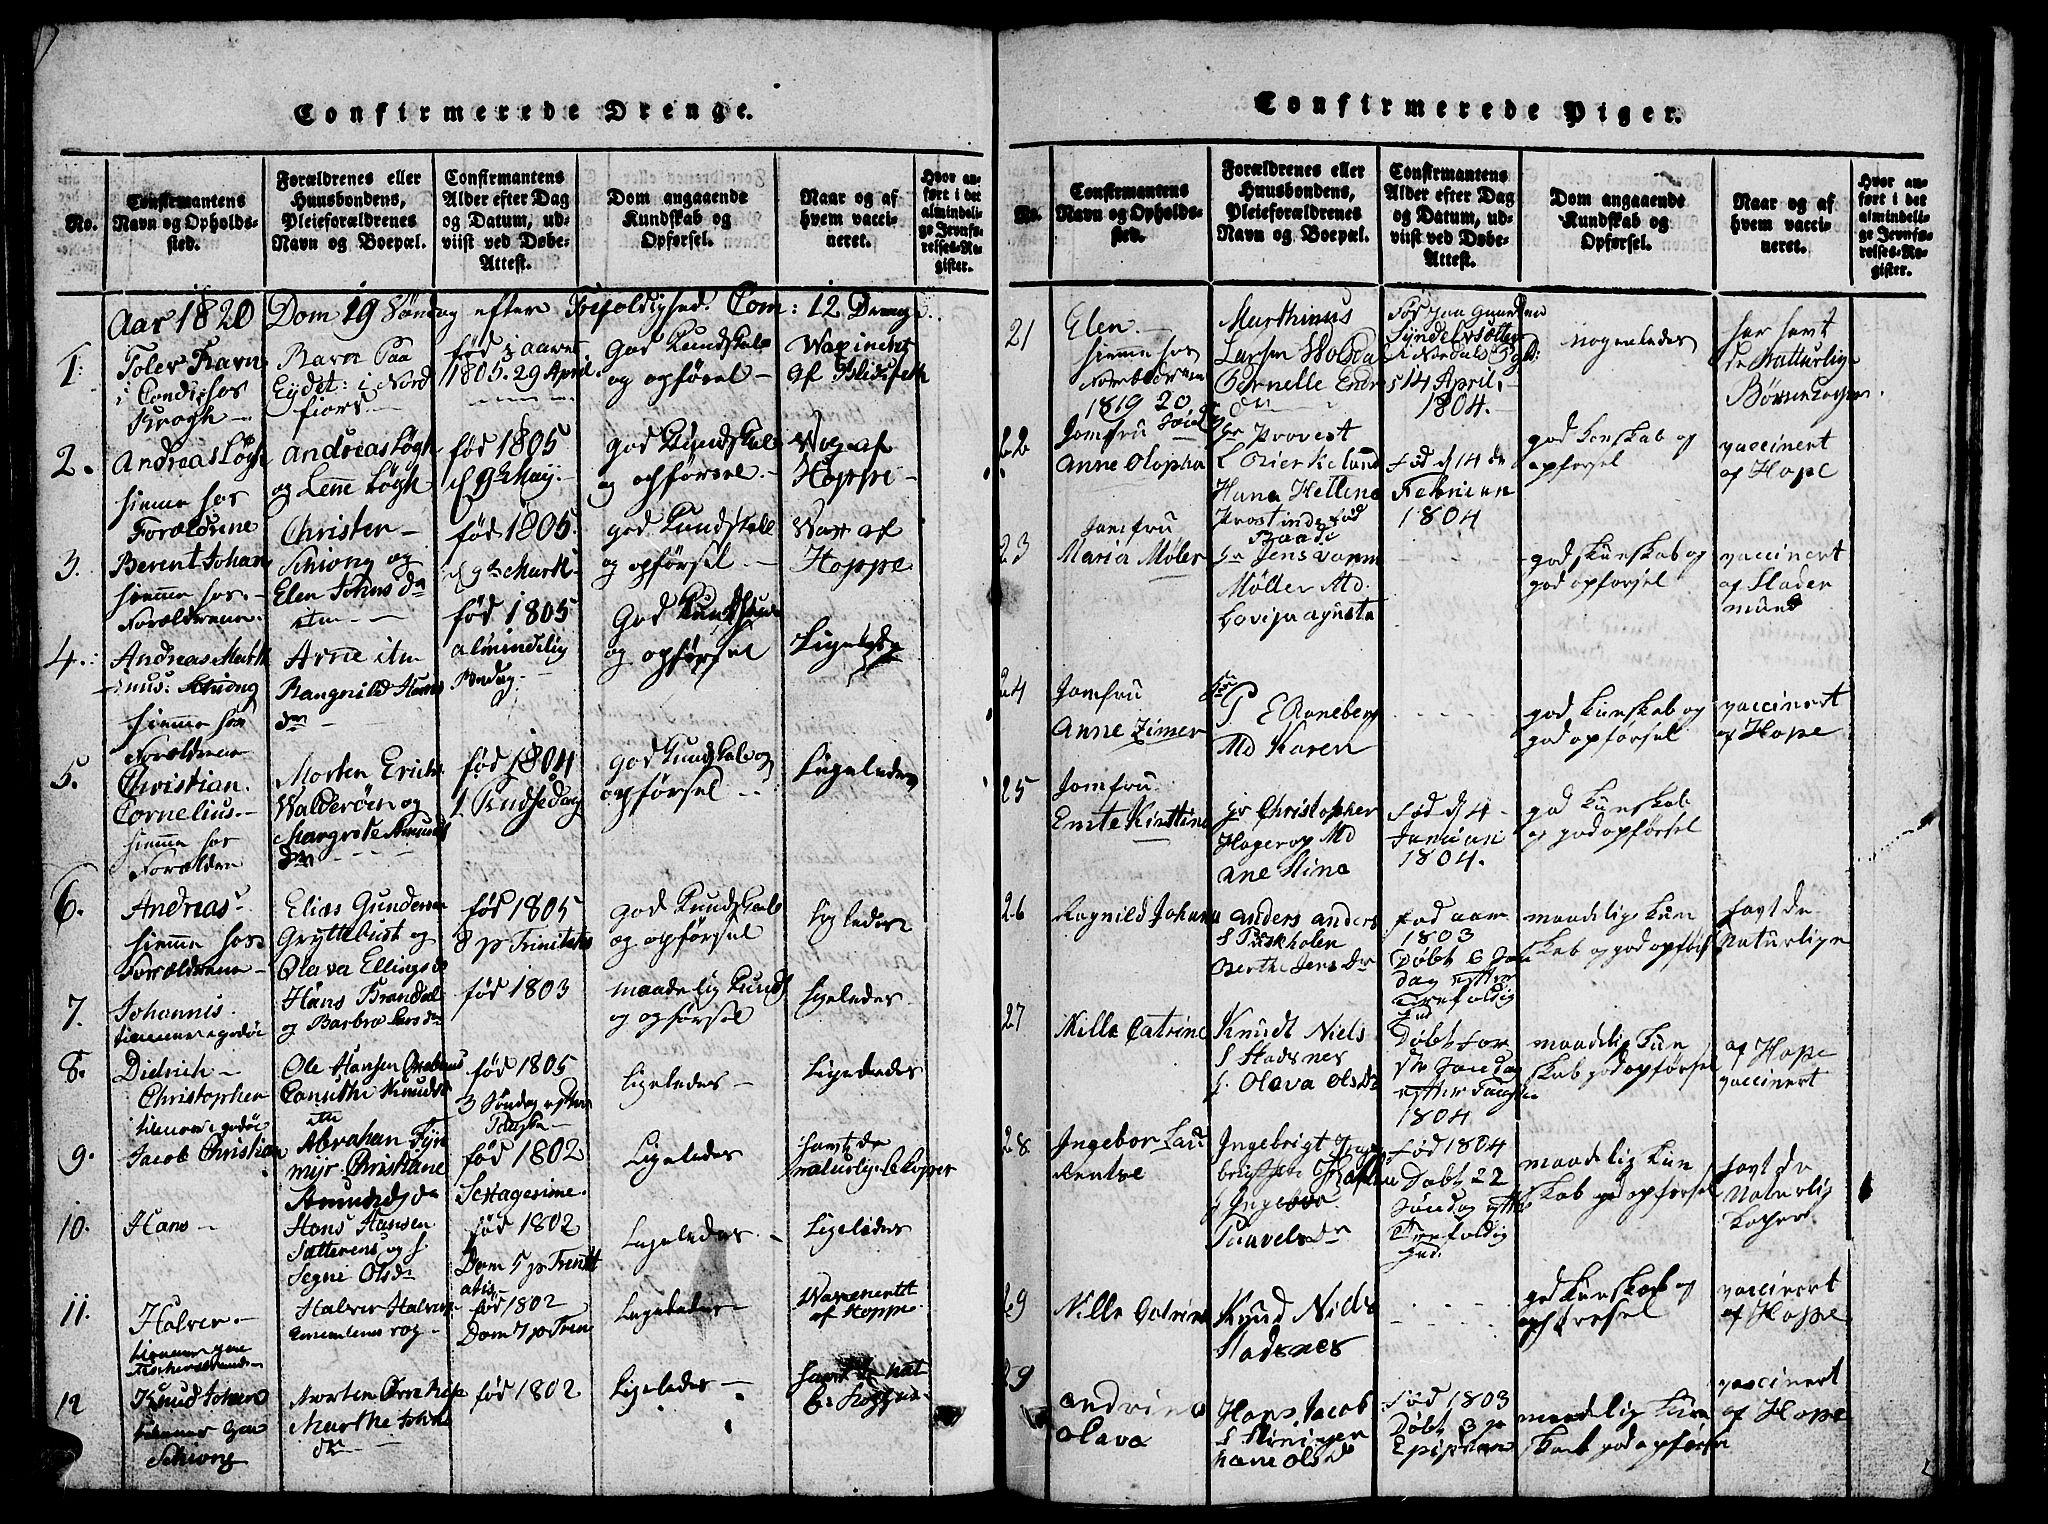 Confirmerede Drenge.
No.
Confirmantens
Navn og Opholds-
sted.
Forældrenes eller
Huusbondens,
Pleieforældrenes
Navn og Boepæl.
Confirmantens
Alder efter Dag
og Datum, ud-
viist ved Døbe-
Attest.
Dom angaaende
Kundskab og
Opførsel.
Naar og af
hvem vacci-
neret.
Hvor an-
ført i det
almindeli-
ge Jevnfø-
relses-Re-
gister.
Aar 1820 Dom 19 Søndag efter Trefoldighed. Com: 12 Drenge
1.
Tolev Ravn
i Condis hos
Krogh
Ravn Paa
Eydet: i Nord
fiord
født aaret
1805. 29 April.
God Kundskab
og opførel
Waxinert
af Blidsfeth
2.
Andreas Løgh
hiemme hos
Forældrene
Andreas Løgh
og Lene Løgh
født 1805
d 9de Maij.
god Kundskab
og opførsel
Wog af
Hoppe
3.
Berent Johan
hiemme hos
Forældrene
Christen
Schiong og
Elen Johns da
født 1805
d 9de Mart
god Kundskab
og opførsel
Wax af
Hoppe
4.
Andreas Marth
inus: Schiong
hiemme hos
Forældrene
Arne itm
Rangnild Hans
dr
født 1805
almindelig
Bededag
God Kundskab
og opførsel
Ligeledes
5.
Christian
Cornelius
hiemme hos
Forældrene
Morten Erichs
Walderøen og
Margrete Amunds
dr
født 1804
2 Pindsedag
God Kundskab og
opførsel
Ligeledes
6.
Andreas
hiemme hos
Forældrene
Elias Gundersen
Gryttebust og
Olava Ellings dr
født 1805
8 p Trinitatis
God Kundskab
og opførsel
Ligeledes
7.
Johannis
Hans Brandal
og Barbro Lars dr
født 1803
maadelig Kund
og opførsel
Ligeledes
8.
Didrich
Christopher
Ole Hansen
Canuthe Knuds
født 1805
3 Søndag efter
Paaske
Ligeledes
Ligeledes
9.
Jacob Christian
Abrahan Fyn
myr Christiane
Amunds da
født 1802
Sexagesime.
Ligeledes
havt de
naturlige Kopper
10.
Hans
Hans Hansen
Sætterens og
Segni Olsdr
født 1802
Dom 5 p Trinit
atis
Ligeledes
Ligeledes
11.
Halver
Halver Halvers
født 1802
Dom 7 p Trini
Ligeledes
Waxenertt
af Hoppe
12
Knud Johan
Schiong
Morten
Marthe Johns
dr
født 1802
Ligeledes
havt de nat
Confirmerede Piger.
No.
Confirmantens
Navn og Opholds-
sted.
Forældrenes eller
Huusbondens,
Pleieforældrenes
Navn og Boepæl.
Confirmantens
Alder efter Dag
og Datum, ud-
viist ved Døbe-
Attest.
Dom angaaende
Kundskab og
Opførsel.
Naar og af
hvem vacci-
neret.
Hvor an-
ført i det
almindeli-
ge Jevnfø-
relses-Re-
gister.
21
Elen
hiemme hos
1819 20
Marthinus
Larsen Wolsdal
Pernelle Endr
Før Jaa Gaarden
i Nordals Pgld:
14 April,
1804.
nogenledes
har havt
de Natturlige
Børnekopper
22
Jomfru
Anne Olopha
hr Provest
Hana Hellena
Prostinde
Fød d 14 de
Februari
1804
god kunskab og
opførsel
vaccinert
af Hope
23
Jomfru
Maria Møler
hr Jens
Møller Md
Lovisa agusta
god kunskab og
god opførsel
vaccinert
af Staden
mund
24
Jomfru
Anne Zimer
hr
P E Roneberg
Md Karen
god kunskab og
god opførsel
vaccinert
af Hope
25
Jomfru
Emte Kirstine
hr Christopher
Hagerop Md
Ane Stina
Fød d 4
Januari
1804.
god kunskab
og god opførsel
26
Ragnild Johana
Anders Anders
Berthe Jens Dr
Fød aar
1803
Døbt 6 Søn
dag efter
Trefoldig
hed
maadelige kun
skab og god opførs
havt de
Naturlige
27
Nille Catrine
Knudt Niels
S Stadsnes
Olava Olsdr
Døbt før
ste Søndag
efter Paaske
1804
maadelig kun
skab god opførsel
af Hope
vaccinert
28
Ingebor Lau
rentse
Ingebrigt Inge
brigtsen
Ingebor
Paavelsdr
Fød 1804
Døbt 22
Søndag efter
Trefoldig
hed.
maadelig kun
skab god opførsel
havt de
Naturlig
Koper.
29
Nille Catrine
Knud Niels
Stadsnes
god kunskab og
opførsel
vaccinert
af Hope
29
Andrine
Olava
Hans Jacob
ane Olsd
Fød 1803
Døbt 3 p
Epiphan
maadelig kun
skab god opførsel
vaccinert
af Hope